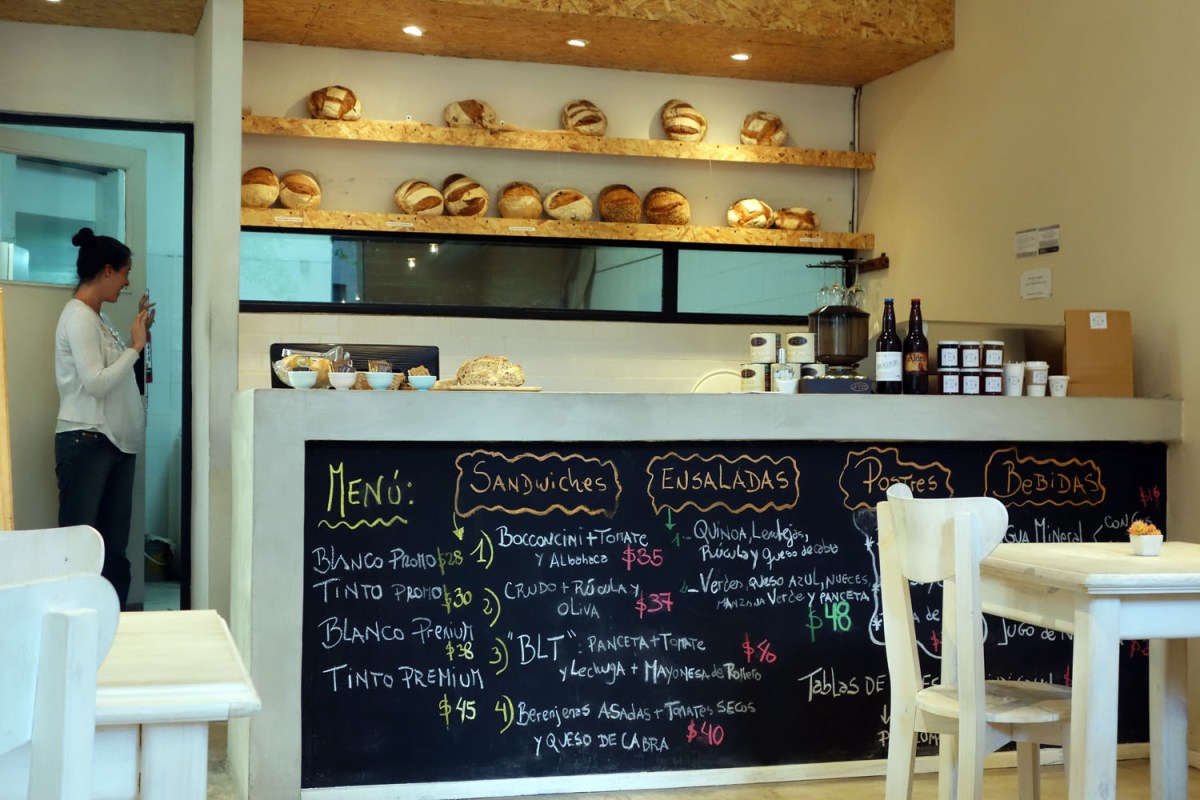 MENÚ:
BLANCO PROMO $28
TINTO PROMO $30
BLANCO PREMIUM
$38
TINTO PREMIUM
$45
SANDWICHES
1) BOCCONCINI + TOMATE
Y ALBAHACA $35
2) CRUDO + RÚCULA Y
OLIVA $37
3) "BLT": PANCETA + TOMATE
Y LECHUGA + MAYONESA DE ROMERO
4) BERENJENAS ASADAS + TOMATES SECOS
Y QUESO DE CABRA $40
ENSALADAS
1- QUINOA, LENTEJAS,
RÚCULA Y QUESO DE CABRA
VERDES, QUESO AZUL, NUECES,
MANZANA VERDE Y PANCETA
$48
POSTRES
TABLAS DE
BEBIDAS
AGUA MINERAL
JUGO DE